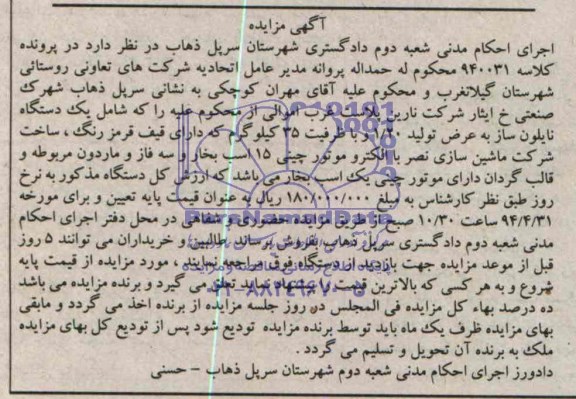 آگهی مزایده
اجرای احکام مدنی شعبه دوم دادگستری شهرستان سرپل ذهاب در نظر دارد در پرونده
کلاسه ۹۴۰۰۳۱ محکوم له حمداله پروانه مدیر عامل اتحادیه شرکت های تعاونی روستائی
شهرستان گیلانغرب و محکوم علیه آقای مهران کوچکی به نشانی سرپل ذهاب شهرک
صنعتی خ ایثار شرکت نارین پلاست غرب اموالی از محکوم علیه را که شامل یک دستگاه
نایلون ساز به عرض تولید ۱/۲۰ و با ظرفیت ۳۵ کیلوگرم که دارای قیف قرمز رنگ ، ساخت
شرکت ماشین سازی نصر با الکترو موتور چینی ۱۵ اسب بخار و سه فاز و ماردون مربوطه و
قالب گردان دارای موتور چینی یک اسب بخار می باشد که ارزش کل دستگاه مذکور به نرخ
روز طبق نظر کارشناس به مبلغ ۱۸۰/۰۰۰/۰۰۰ ریال به عنوان قیمت پایه تعیین و برای مورخه
۹۴/۴/۳۱ ساعت ۱۰/۳۰ صبح از طریق مزایده حضوری و شفاهی در محل دفتر اجرای احکام
مدنی شعبه دوم دادگستری سرپل ذهاب بفروش برساند طالبین و خریداران می توانند ۵ روز
قبل از موعد مزایده جهت بازدید از دستگاه فوق مراجعه نمایند ، مورد مزایده از قیمت پایه
شروع و به هر کسی که بالاترین قیمت پیشنهاد نماید تعلق می گیرد و برنده مزایده می باشد
ده درصد بهاء کل مزایده فی المجلس در روز جلسه مزایده از برنده اخذ می گردد و مابقی
بهای مزایده ظرف یک ماه باید توسط برنده مزایده تودیع شود پس از تودیع کل بهای مزایده
ملک به برنده آن تحویل و تسلیم می گردد .
دادورز اجرای احکام مدنی شعبه دوم شهرستان سرپل ذهاب – حسنی